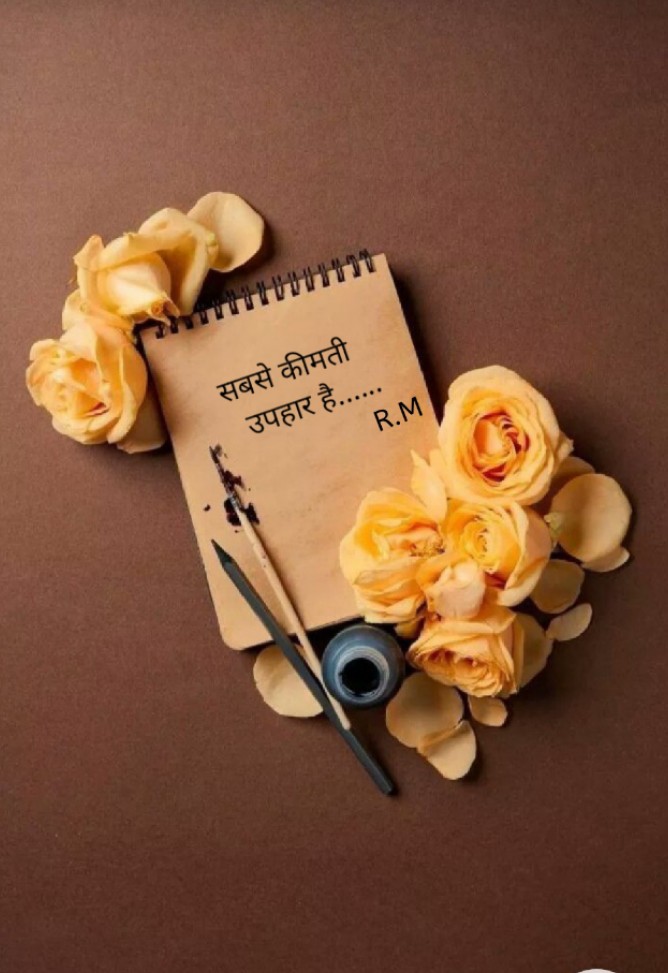 सबसे कीमती
उपहार है......
R.M